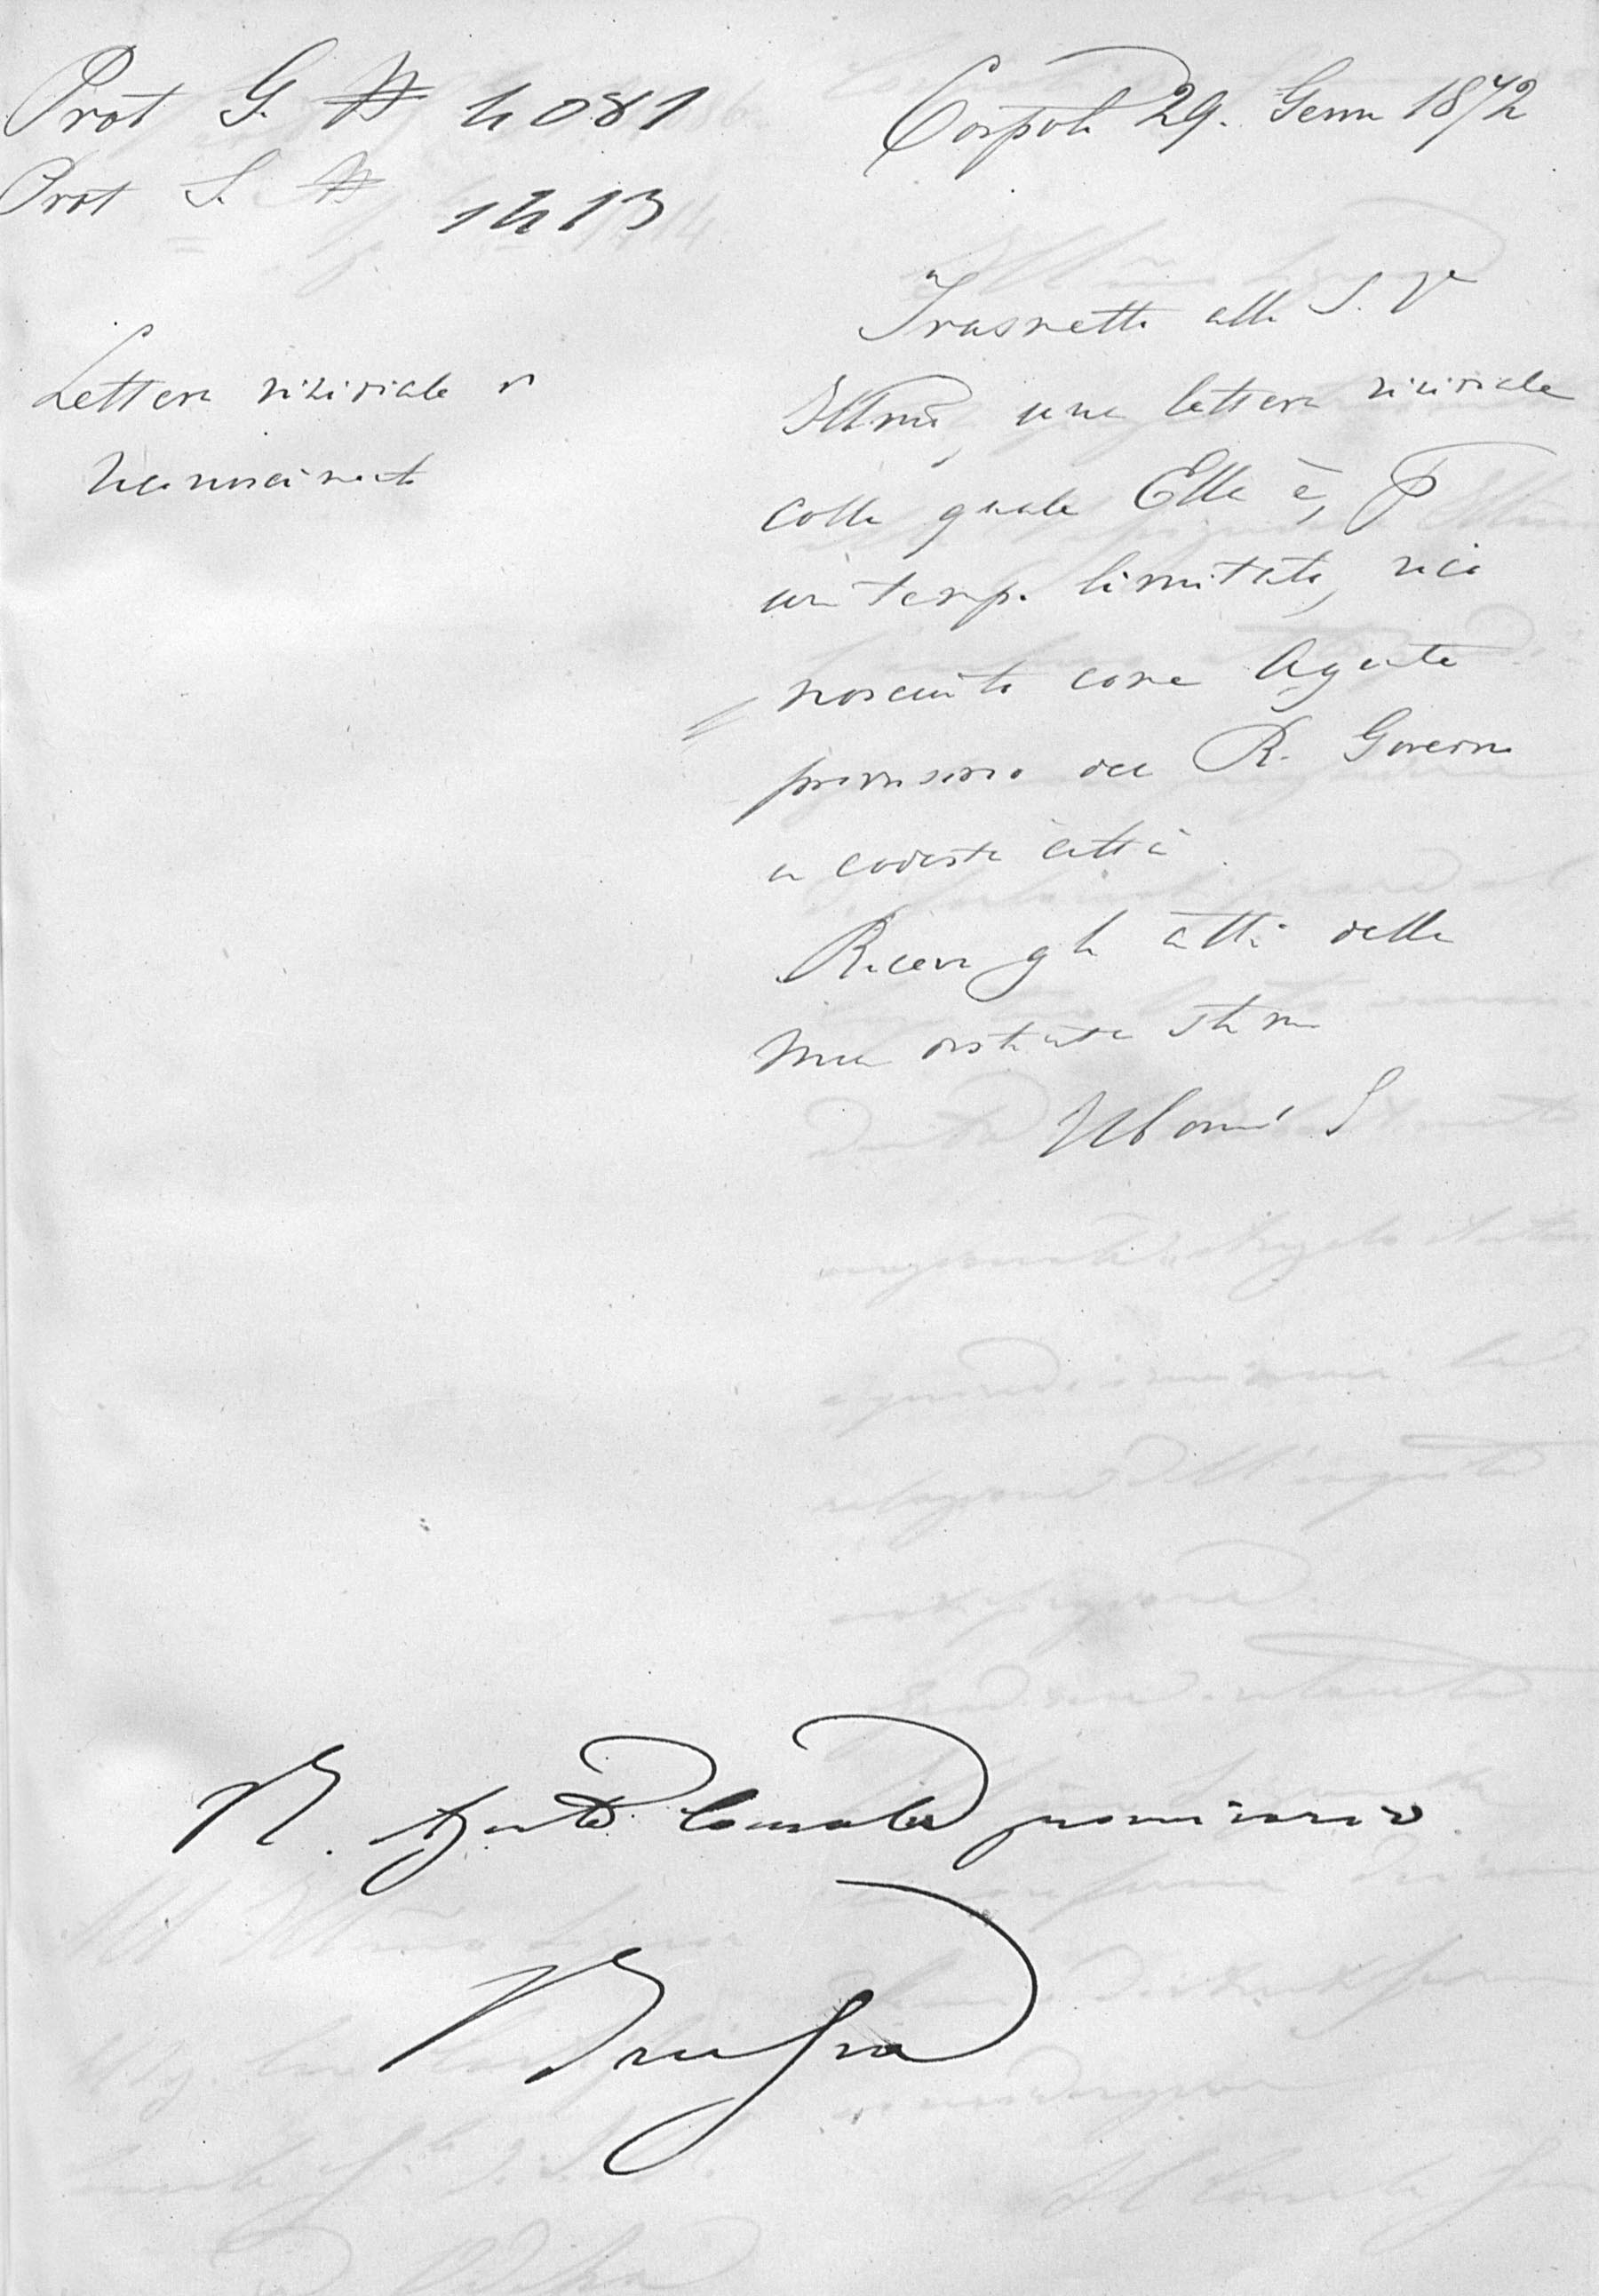 Prot G. N 4081
Prot S. N 1413
Cospoli 29. Genn 1872
Lettera viziriale di
riconoscimento
Trasmetto alla S. V.
Illma, una lettera viziriale
colla quale Ella è, P
un temp. limitato, rico
nosciuto come Agente
provvisorio del R. Governo
in codesta città.
Riceva gli atti della
mia distinta stima
Il Con S
R. Agente Consolare provvisorio
Brussa